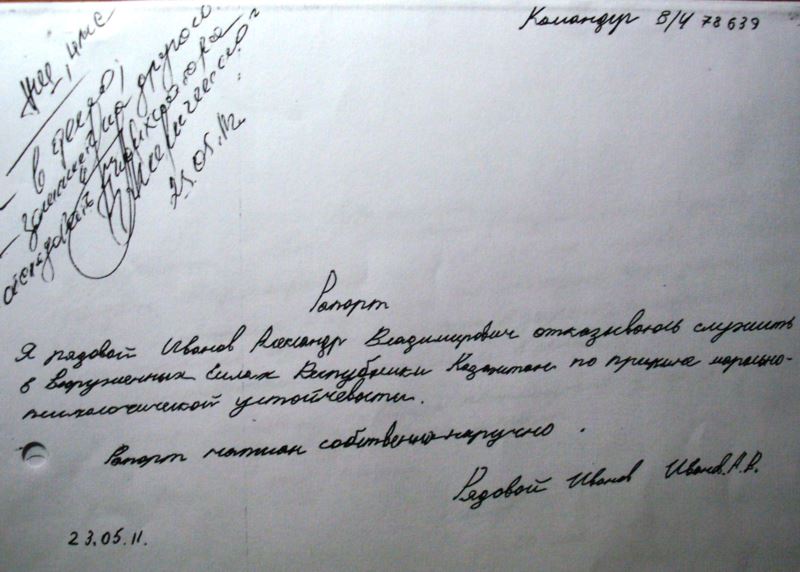 Командир В/Ч 78639
в дело;
другого
25.05.11г.
Рапорт
Я рядовой Иванов Александр Владимирович отказываюсь служить
в Вооруженных Силах Республики Казахстан по причине морально-
психологической устойчевости.
Рапорт написан собственно-наручно.
Рядовой Иванов Иванов.А.В.
23.05.11.